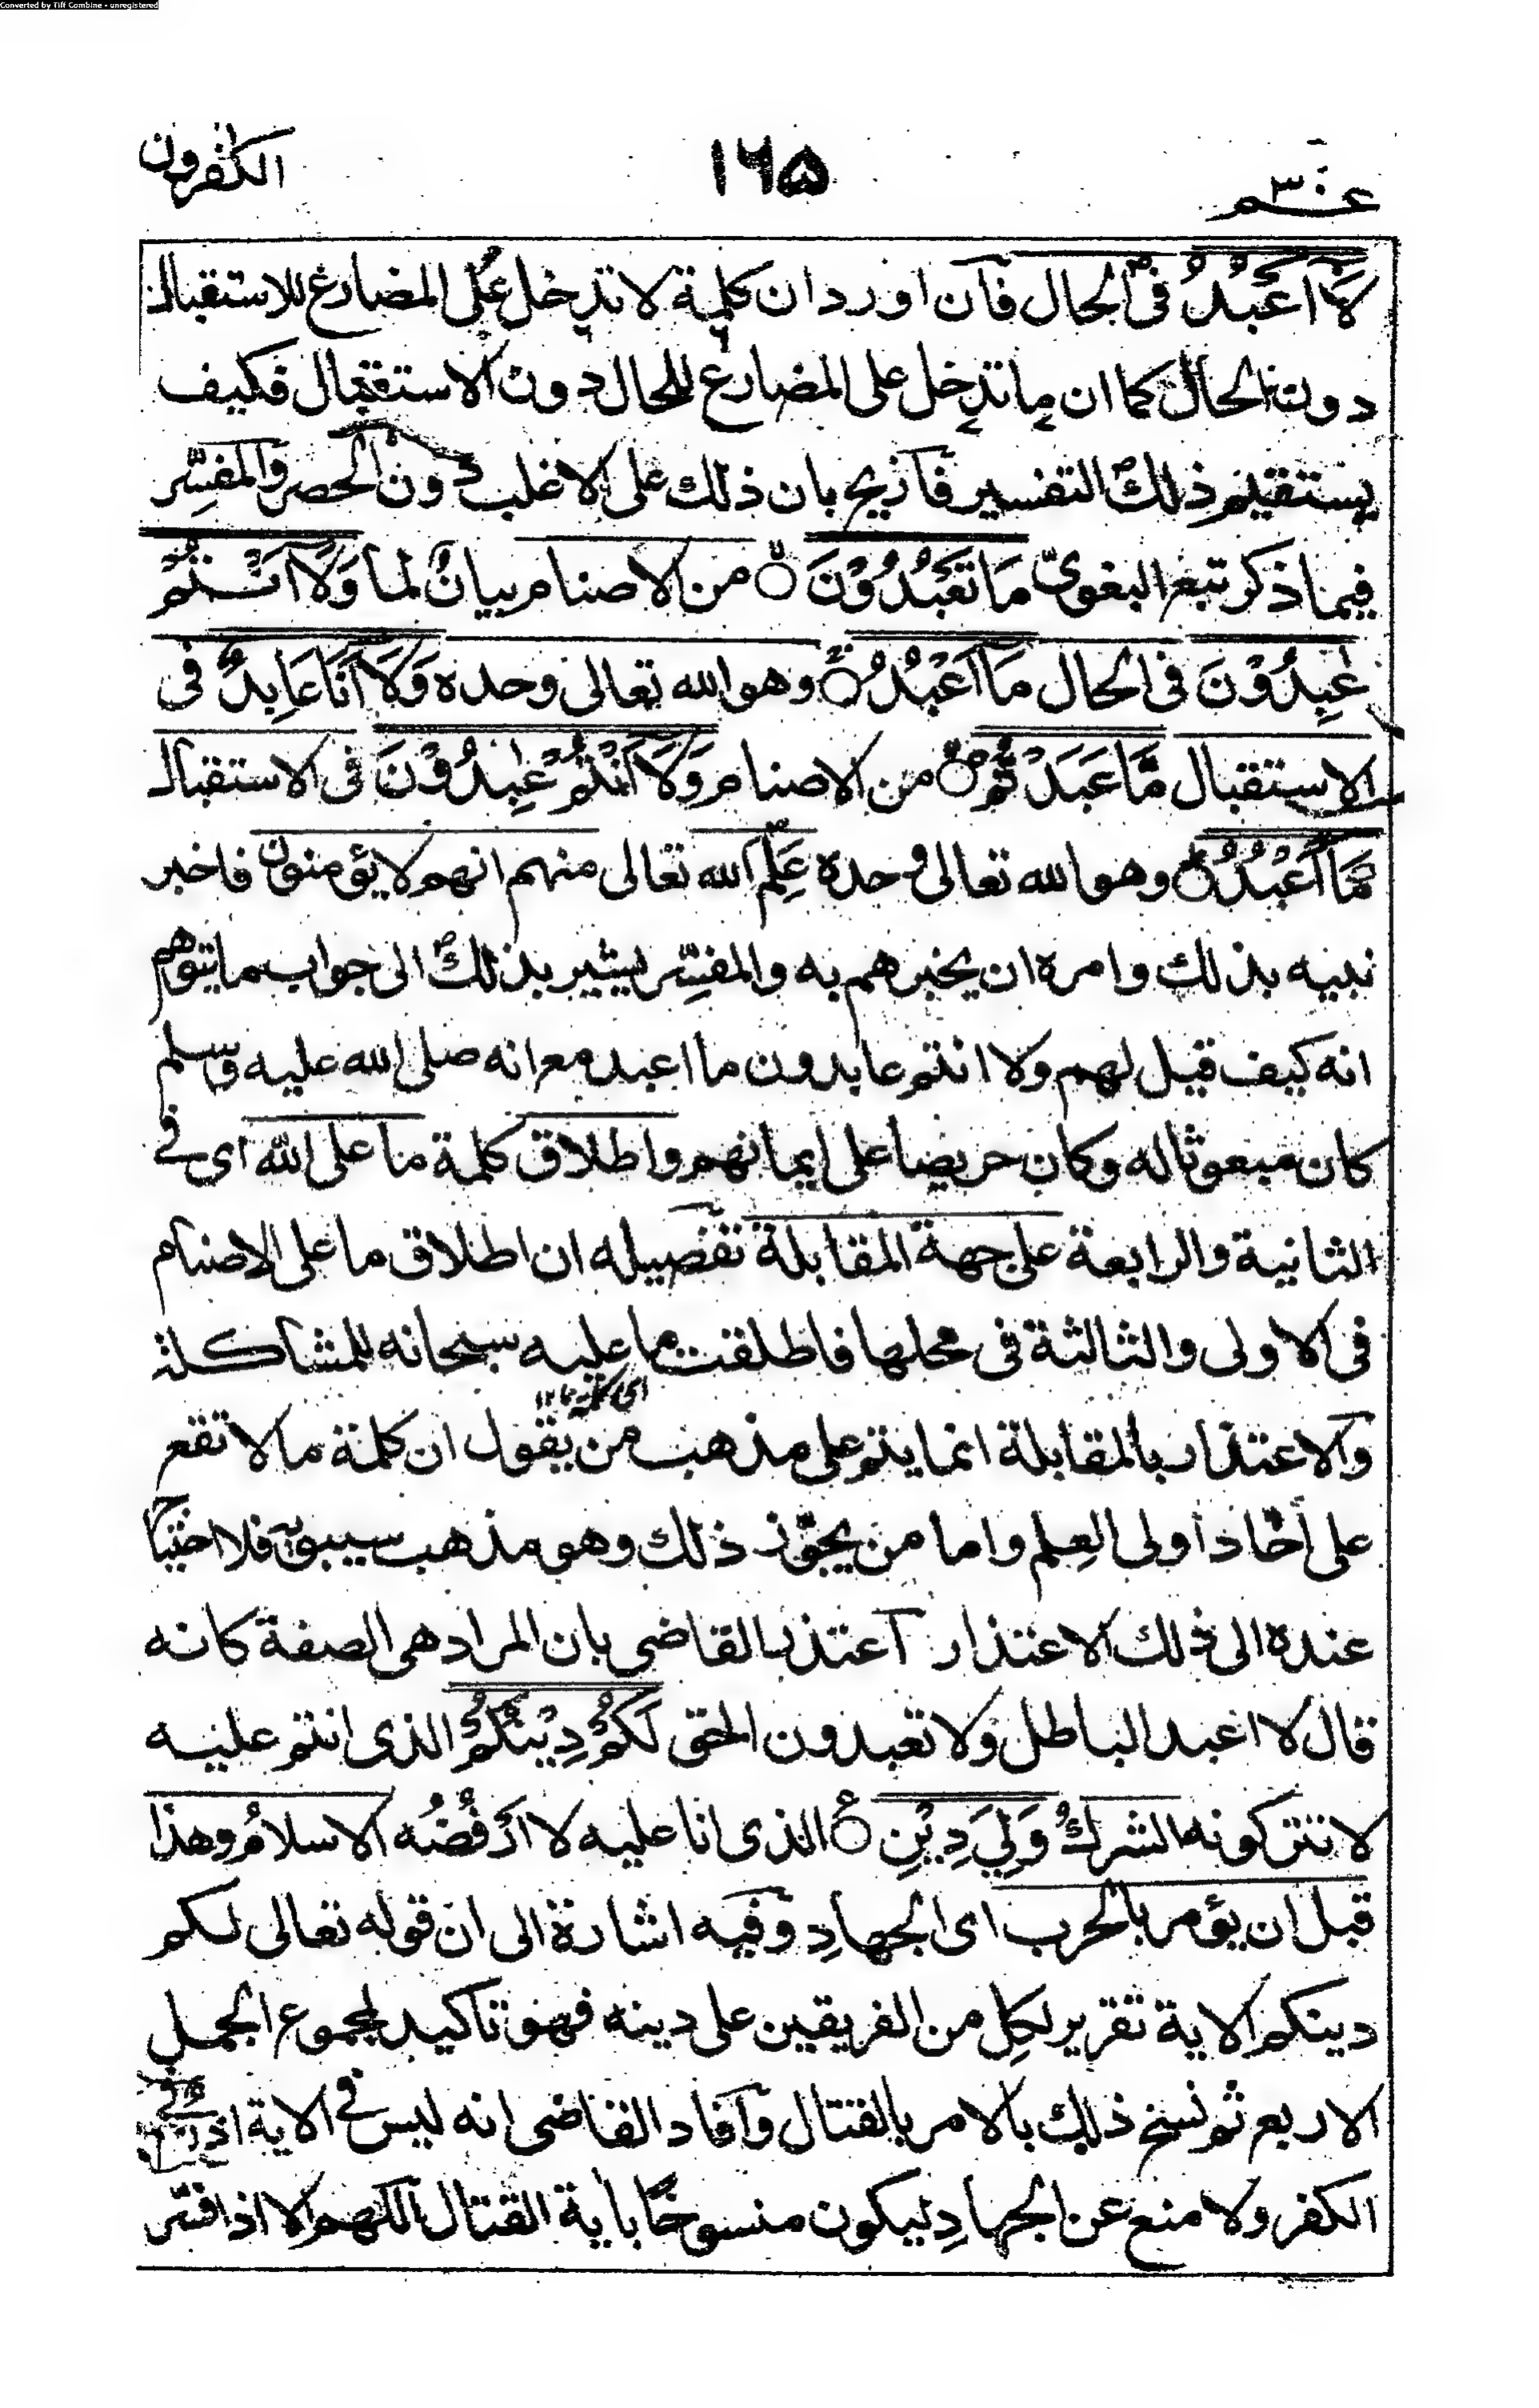 Converted by Tiff Combine - unregistered
عم ٣٠
١٦٥
الكٰفرون
لَآ اَعْبُدُ فى الحال فآن اورد ان كلمة لا تدخل على المضارع للاستقبال
دون الحال كما ان ما تدخل على المضارع للحال دون الاستقبال فكيف
يستقيم ذلك التفسير فآزيح بان ذلك على الاغلب دون الحصر والمفسّر
فيما ذكر تبع البغوىّ مَا تَعْبُدُوْنَ ۝ من الاصنام بيانٌ لما وَلَآ اَنْتُمْ
عٰبِدُوْنَ فى الحال مَآ اَعْبُدُ ۝ وهو الله تعالى وحده وَلَآ اَنَا عَابِدٌ فى
الاستقبال مَّا عَبَدْتُّمْ ۝ من الاصنام وَلَآ اَنْتُمْ عٰبِدُوْنَ فى الاستقبال
مَآ اَعْبُدُ ۝ وهو الله تعالى وحده عَلِمَ الله تعالى منهم انهم لا يؤمنون فاخبر
نبيه بذلك وامره ان يخبرهم به والمفسِّر يشير بذلك الى جواب ما يتوهم
انه كيف قيل لهم ولا انتم عابدون ما اعبد مع انه صلى الله عليه وسلم
كان مبعوثا له وكان حريصا على ايمانهم واطلاق كلمة ما على الله اى فى
الثانية والرابعة على جهة المقابلة تفصيله ان اطلاق ما على الاصنام
فى الاولى والثالثة فى محلها فاطلقت ما عليه سبحانه للمشاكلة
اى كلمة ما ١٢
والاعتذار بالمقابلة انما يتم على مذهب من يقول ان كلمة ما لا تقع
على اٰحاد اولى العِلم واما من يجوّز ذلك وهو مذهب سيبويه فلا احتياج
عنده الى ذلك الاعتذار آعتذر القاضى بان المراد هى الصفة كانه
قال لا اعبد الباطل ولا تعبدون الحق لَكُمْ دِيْنُكُمْ الذى انتم عليه
لا تتركونه الشركُ وَلِيَ دِيْنِ ۝ الذى انا عليه لا اَرْفُضُه الاسلامُ وهذا
قبل ان يؤمر بالحرب اى الجهادِ وفيه اشارة الى ان قوله تعالى لكم
دينكم الاية تقرير لكل من الفريقين على دينه فهو تاكيد لمجموع الجمل
الاربع ثم نسخ ذلك بالامر بالقتال وآفاد القاضى انه ليس فى الاية اذن فى
الكفر ولا منع عن الجهادِ ليكون منسوخًا باٰية القتال آللهم الا اذا فسّر